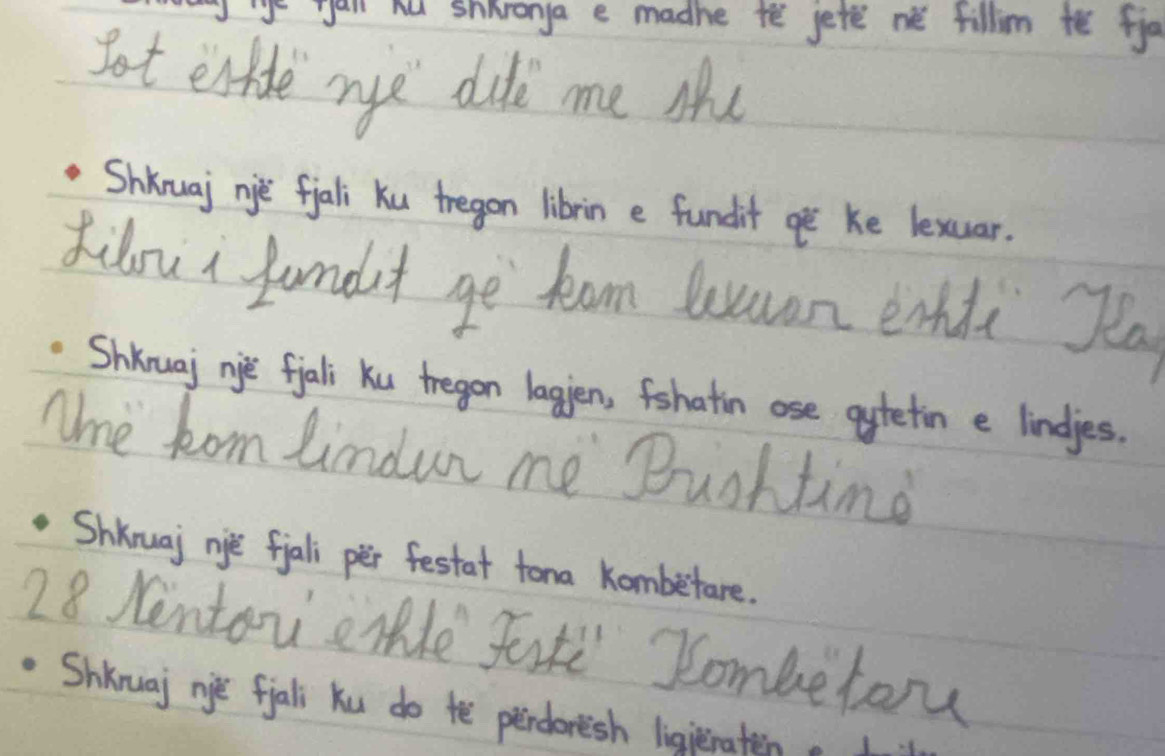 një fjali ku shkronja e madhe të jetë në fillim të
Sot është një ditë me shi
Shkruaj një fjali ku tregon librin e fundit që ke lexuar.
Libri i fundit që kam lexuar është
Shkruaj një fjali ku tregon lagjen, fshatin ose qytetin e lindjes.
Unë kam lindur në Prishtinë
Shkruaj një fjali për festat tona kombëtare.
28 Nëntori është Festë Kombëtare
Shkruaj një fjali ku do të përdorësh ligjëratën e